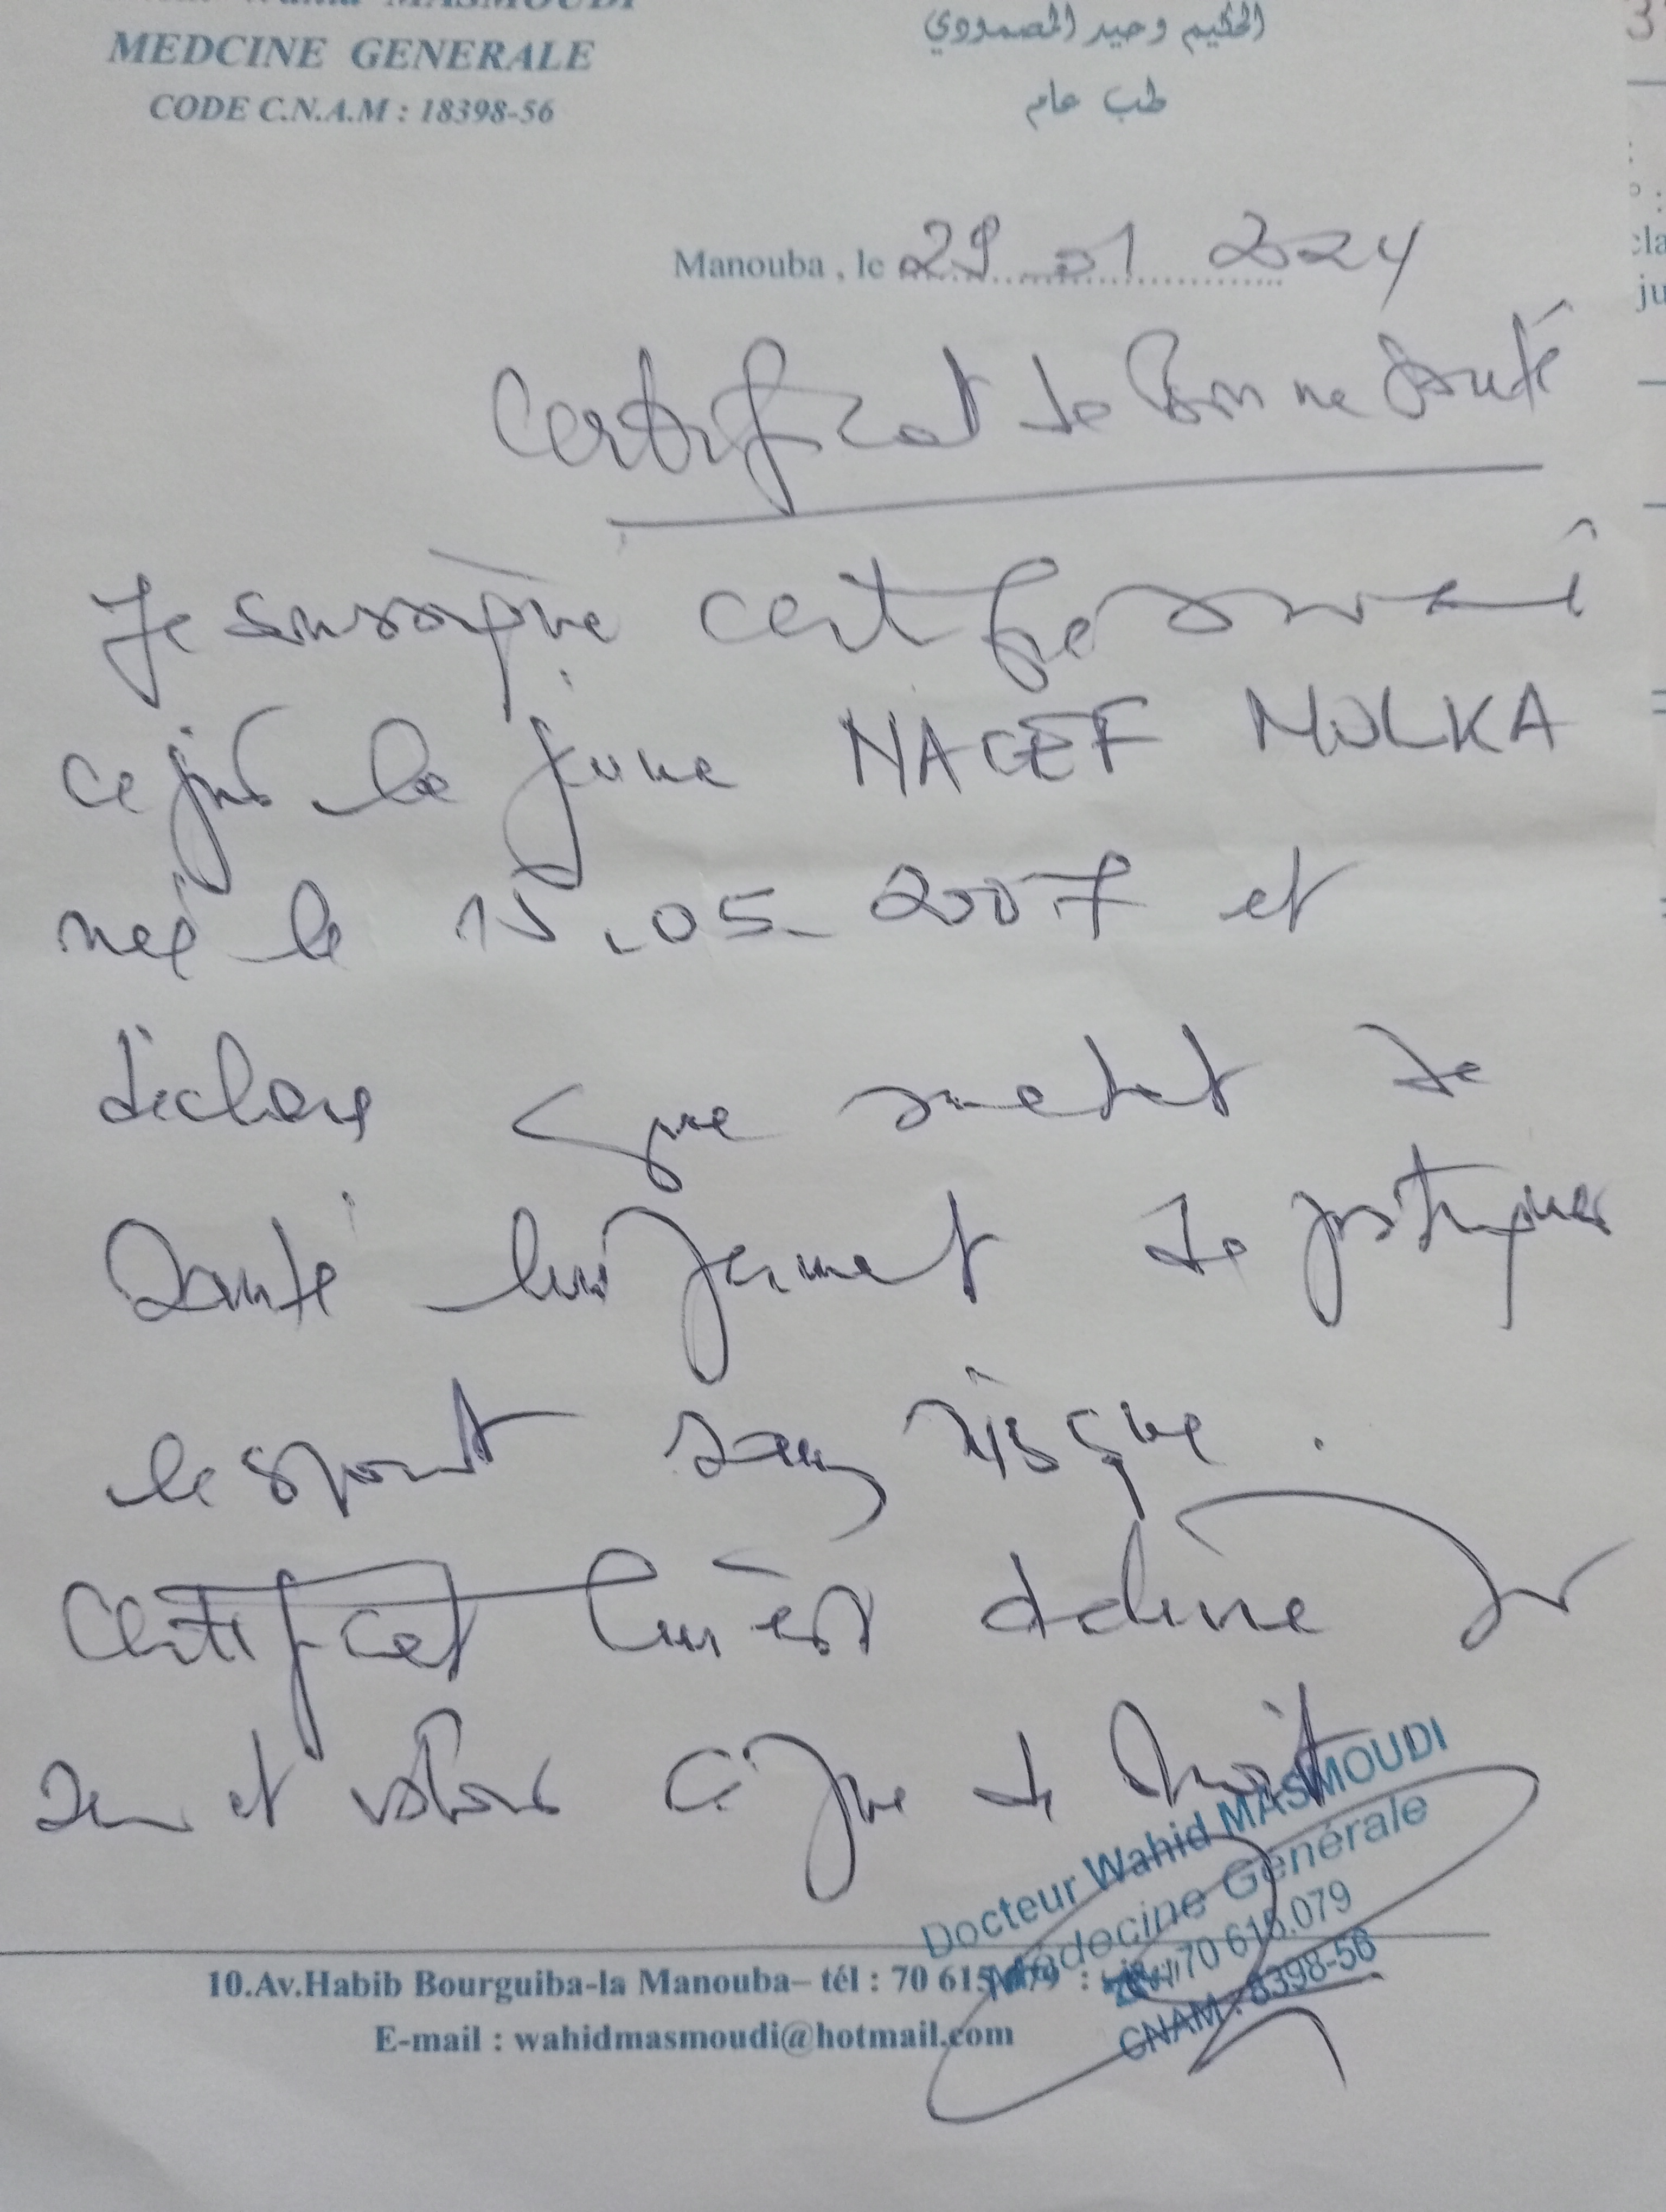 Wahid MASMOUDI
MEDCINE GENERALE
CODE C.N.A.M : 18398-56
الحكيم وحيد المصمودي
طب عام
Manouba , le 29 01 2024
Certificat de Bonne Santé
Je soussigné certifie
ce jour le jeune NACEF MOLKA
né le 15.05.2007 et
déclare que son etat de
Santé lui permet de pratiquer
le sport sans risque .
Certificat lui est délivré
et valoir ce que de droit
Docteur Wahid MASMOUDI
Médecine Générale
70 615.079
CNAM : 8398-56
10.Av.Habib Bourguiba-la Manouba– tél : 70 615 079 :
E-mail : wahidmasmoudi@hotmail.com